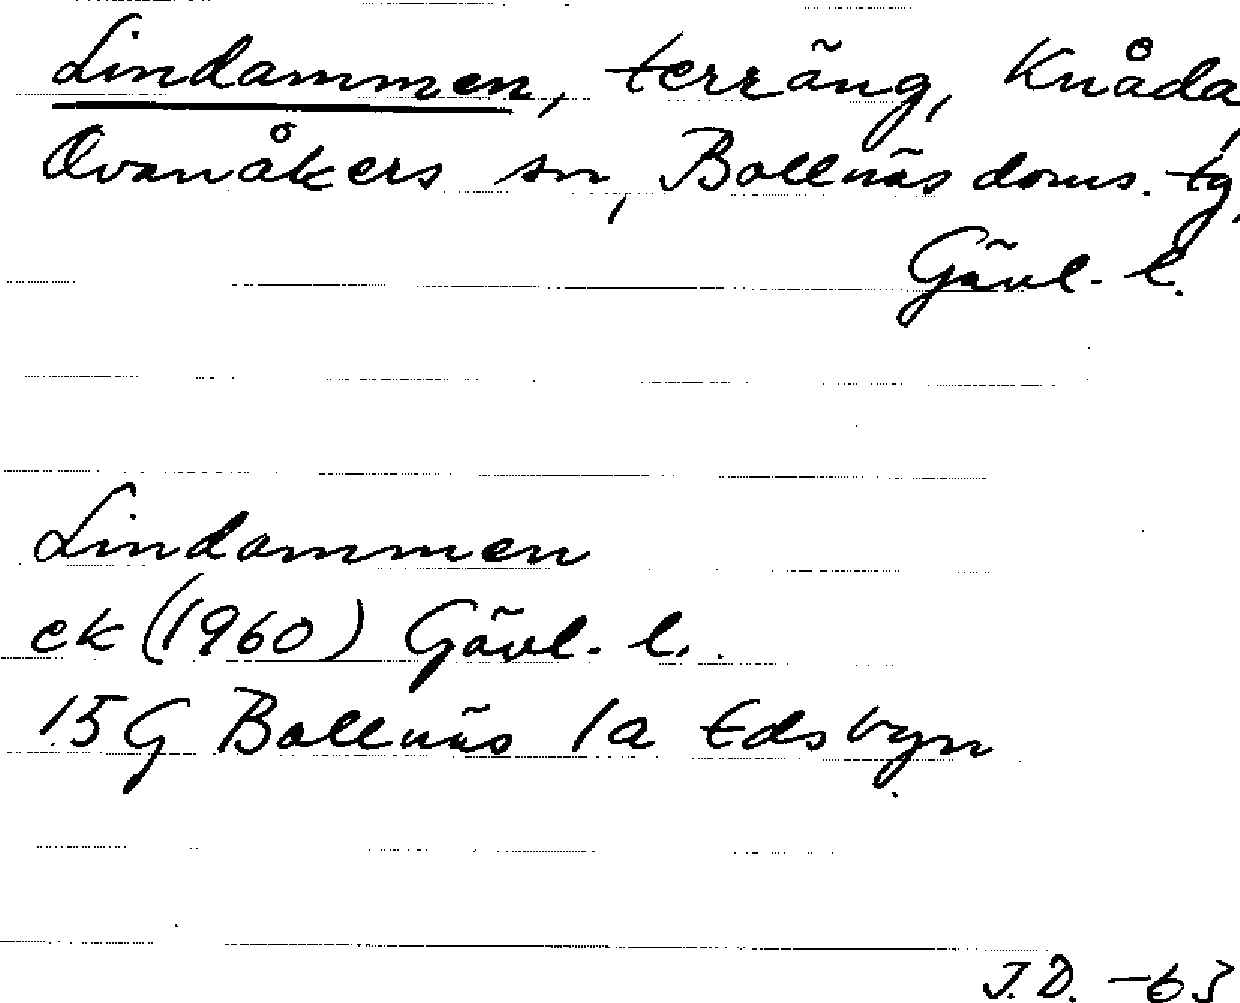 Lindammen, terräng, Knåda,
Ovanåkers sn, Bollnäs doms. tg,
Gävl. l.
Lindammen
ek (1960) Gävl. l.
15G Bollnäs 1a Edsbyn
J.D. -63